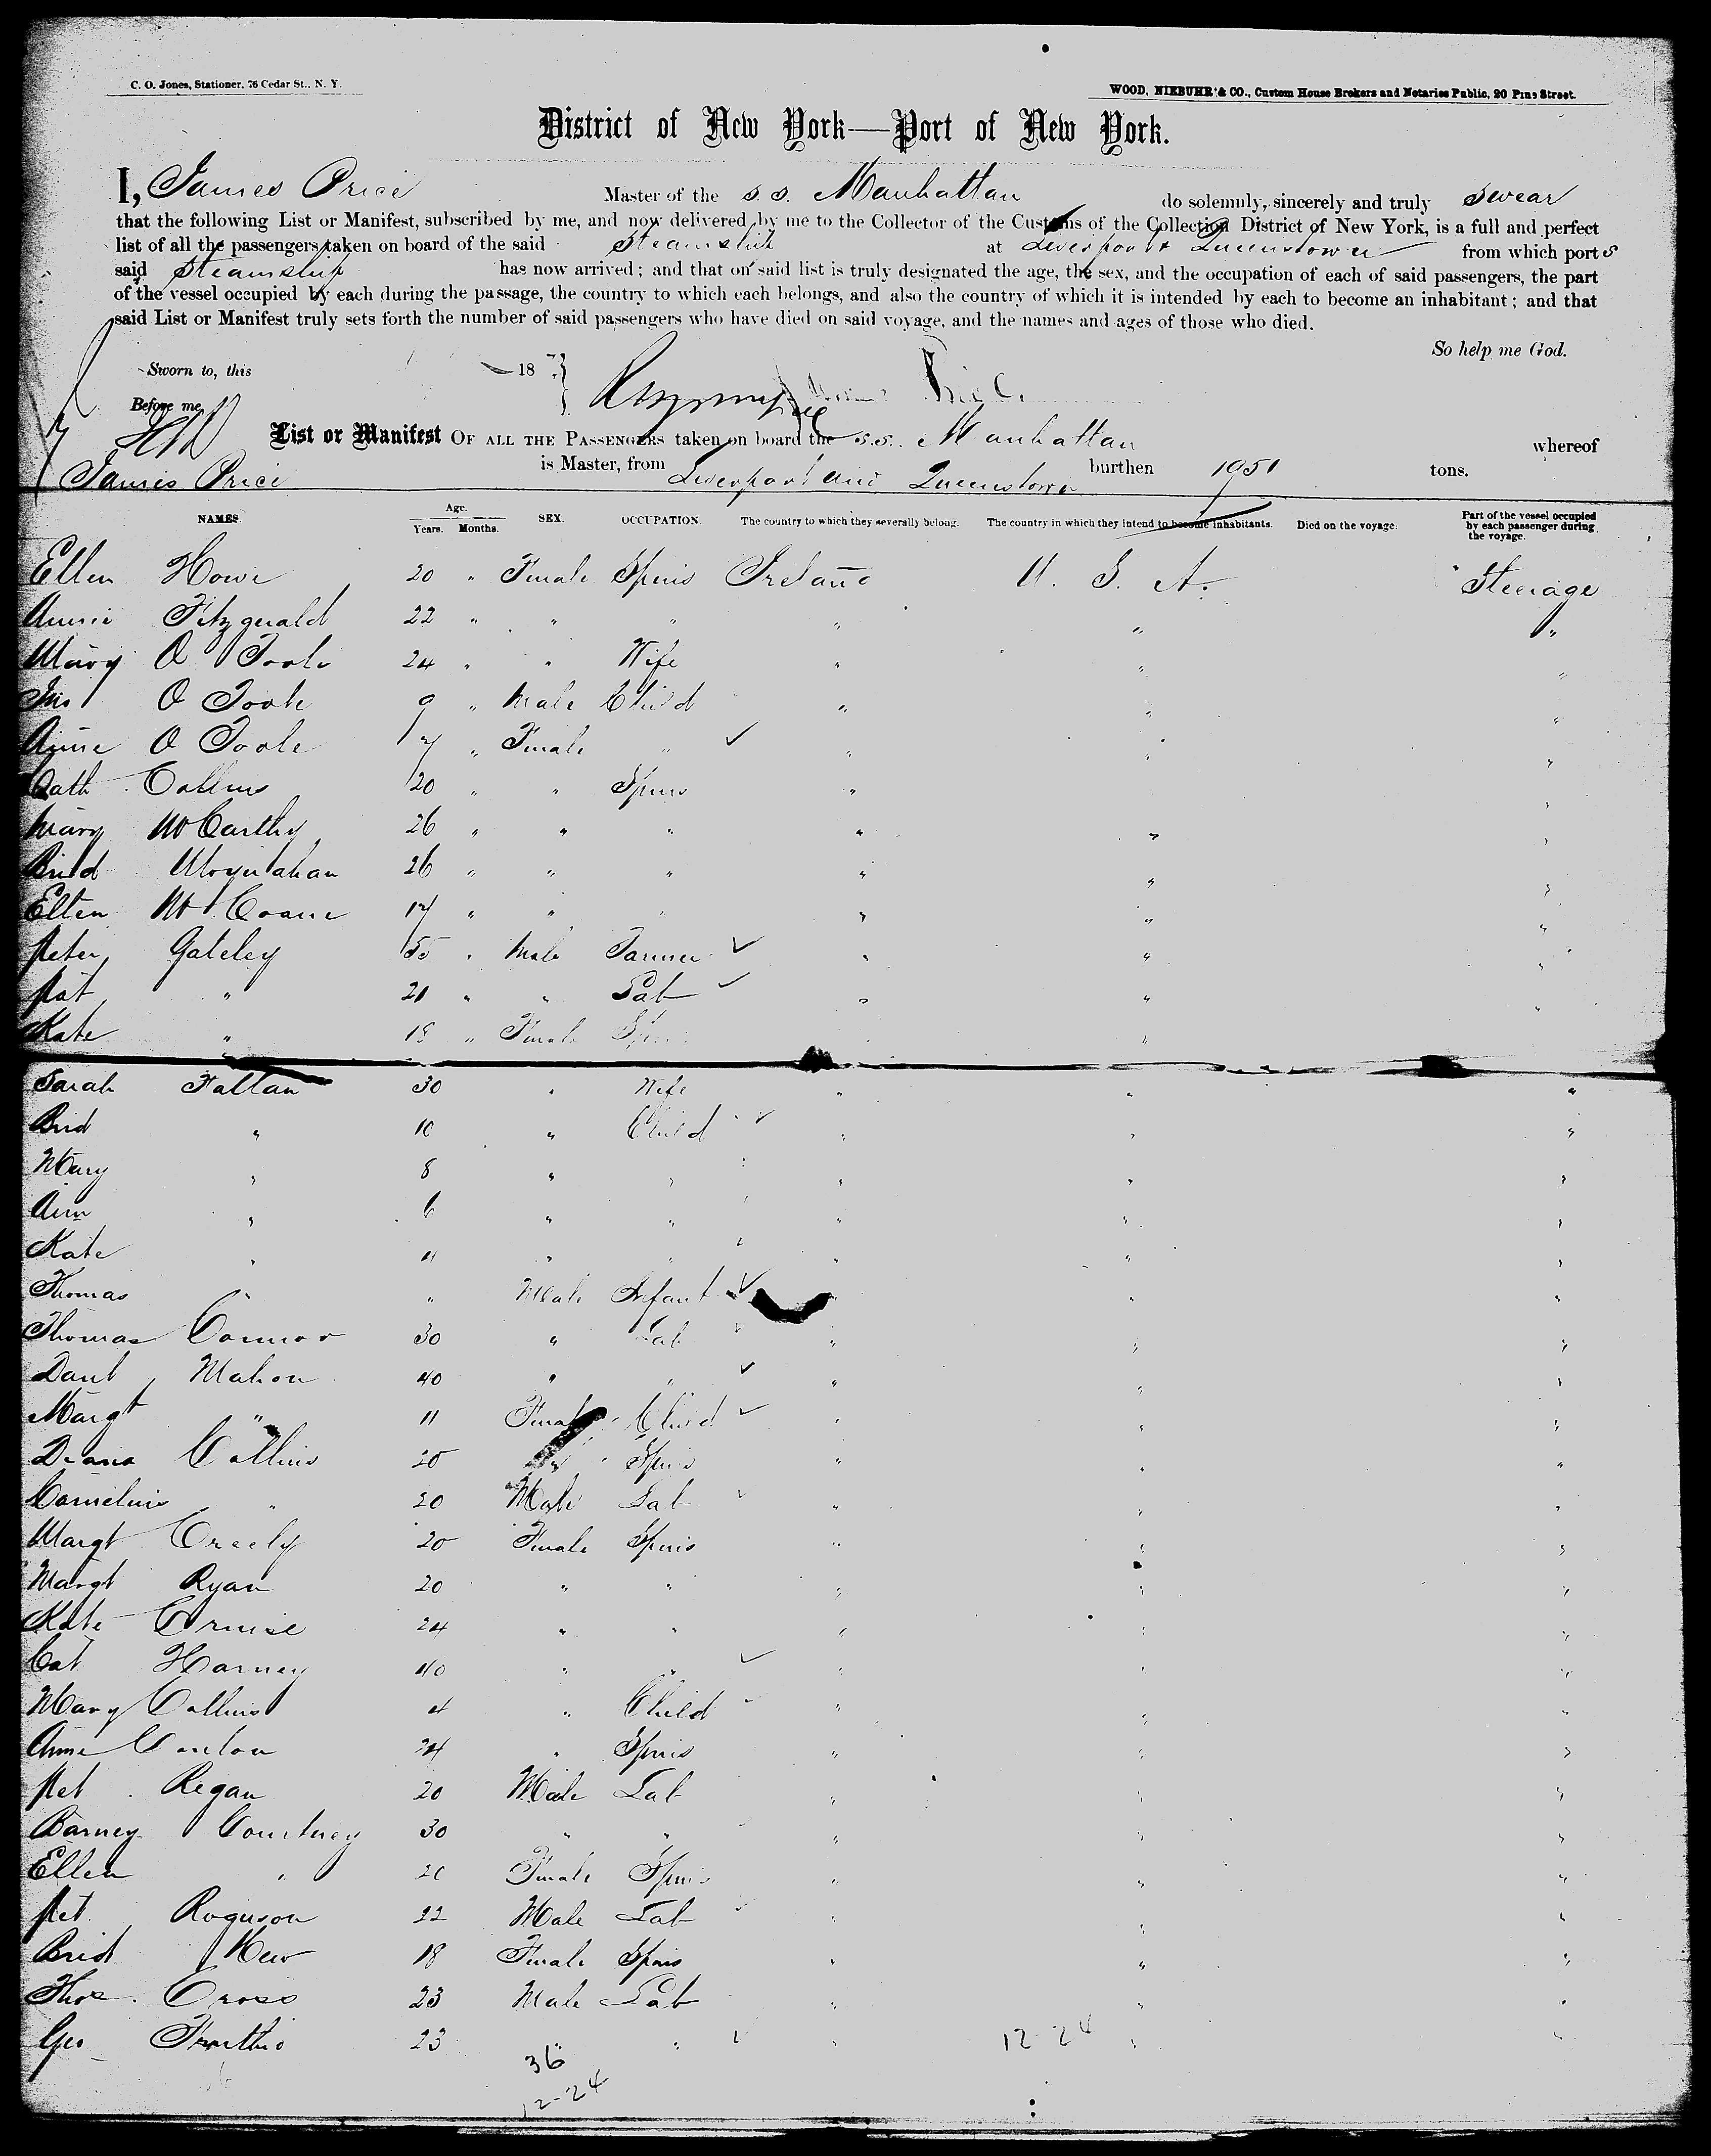 C. O. Jones, Stationer, 76 Cedar St., N. Y.
WOOD, NIEBUHR & CO., Custom House Brokers and Notaries Public, 20 Pine Street.
District of New York—Port of New York.
I, James Price Master of the s.s. Manhattan do solemnly, sincerely and truly swear
that the following List or Manifest, subscribed by me, and now delivered by me to the Collector of the Customs of the Collection District of New York, is a full and perfect
list of all the passengers taken on board of the said Steamship at Liverpool & Queenstown from which ports
said Steamship has now arrived; and that on said list is truly designated the age, the sex, and the occupation of each of said passengers, the part
of the vessel occupied by each during the passage, the country to which each belongs, and also the country of which it is intended by each to become an inhabitant; and that
said List or Manifest truly sets forth the number of said passengers who have died on said voyage, and the names and ages of those who died.
So help me God.
Sworn to, this 187
Before me,
List or Manifest OF ALL THE PASSENGERS taken on board the s.s. Manhattan whereof
James Price is Master, from Liverpool and Queenstown burthen 1951 tons.
NAMES. Age. Years. Months. SEX. OCCUPATION. The country to which they severally belong. The country in which they intend to become inhabitants. Died on the voyage. Part of the vessel occupied by each passenger during the voyage.
Ellen Howe 20 " Female Spins Ireland U. S. A. Steerage
Annie Fitzgerald 22 " " " " " "
Mary O Toole 24 " " Wife " " "
Jno O Toole 9 " Male Child " " "
Anne O Toole 7 " Female " " " "
Cath Collins 20 " " Spins " " "
Mary McCarthy 26 " " " " " "
Brid Moynahan 26 " " " " " "
Ellen 17 " " " " " "
Peter Gateley 55 " Male Farmer " " "
Pat " 21 " " Lab " " "
Kate " 18 " Female Spins " "
Sarah Fallan 30 " Wife " " "
Brid " 10 " Child " " "
Mary " 8 " " " " "
Ann " 6 " " " " "
Kate " 4 " " " " "
Thomas " " Male Infant " " "
Thomas Connor 30 " Lab " " "
Danl Mahon 40 " " " " "
Margt " 11 Female Child " " "
Collins 20 " Spins " " "
Cornelius " 20 Male Lab " " "
Margt Creely 20 Female Spins " " "
Margt Ryan 20 " " " " "
Kate Cruise 24 " " " " "
Cat Harney 40 " " " " "
Mary Collins 4 " Child " " "
Anne Conlon 24 " Spins " " "
Pat Regan 20 Male Lab " " "
Barney Courtney 30 " " " " "
Ellen " 20 Female Spins " " "
Pat 22 Male Lab " " "
Brid 18 Female Spins " " "
Thos. Cross 23 Male Lab " " "
Geo 23 " " " 12-24 " "
36
12-24